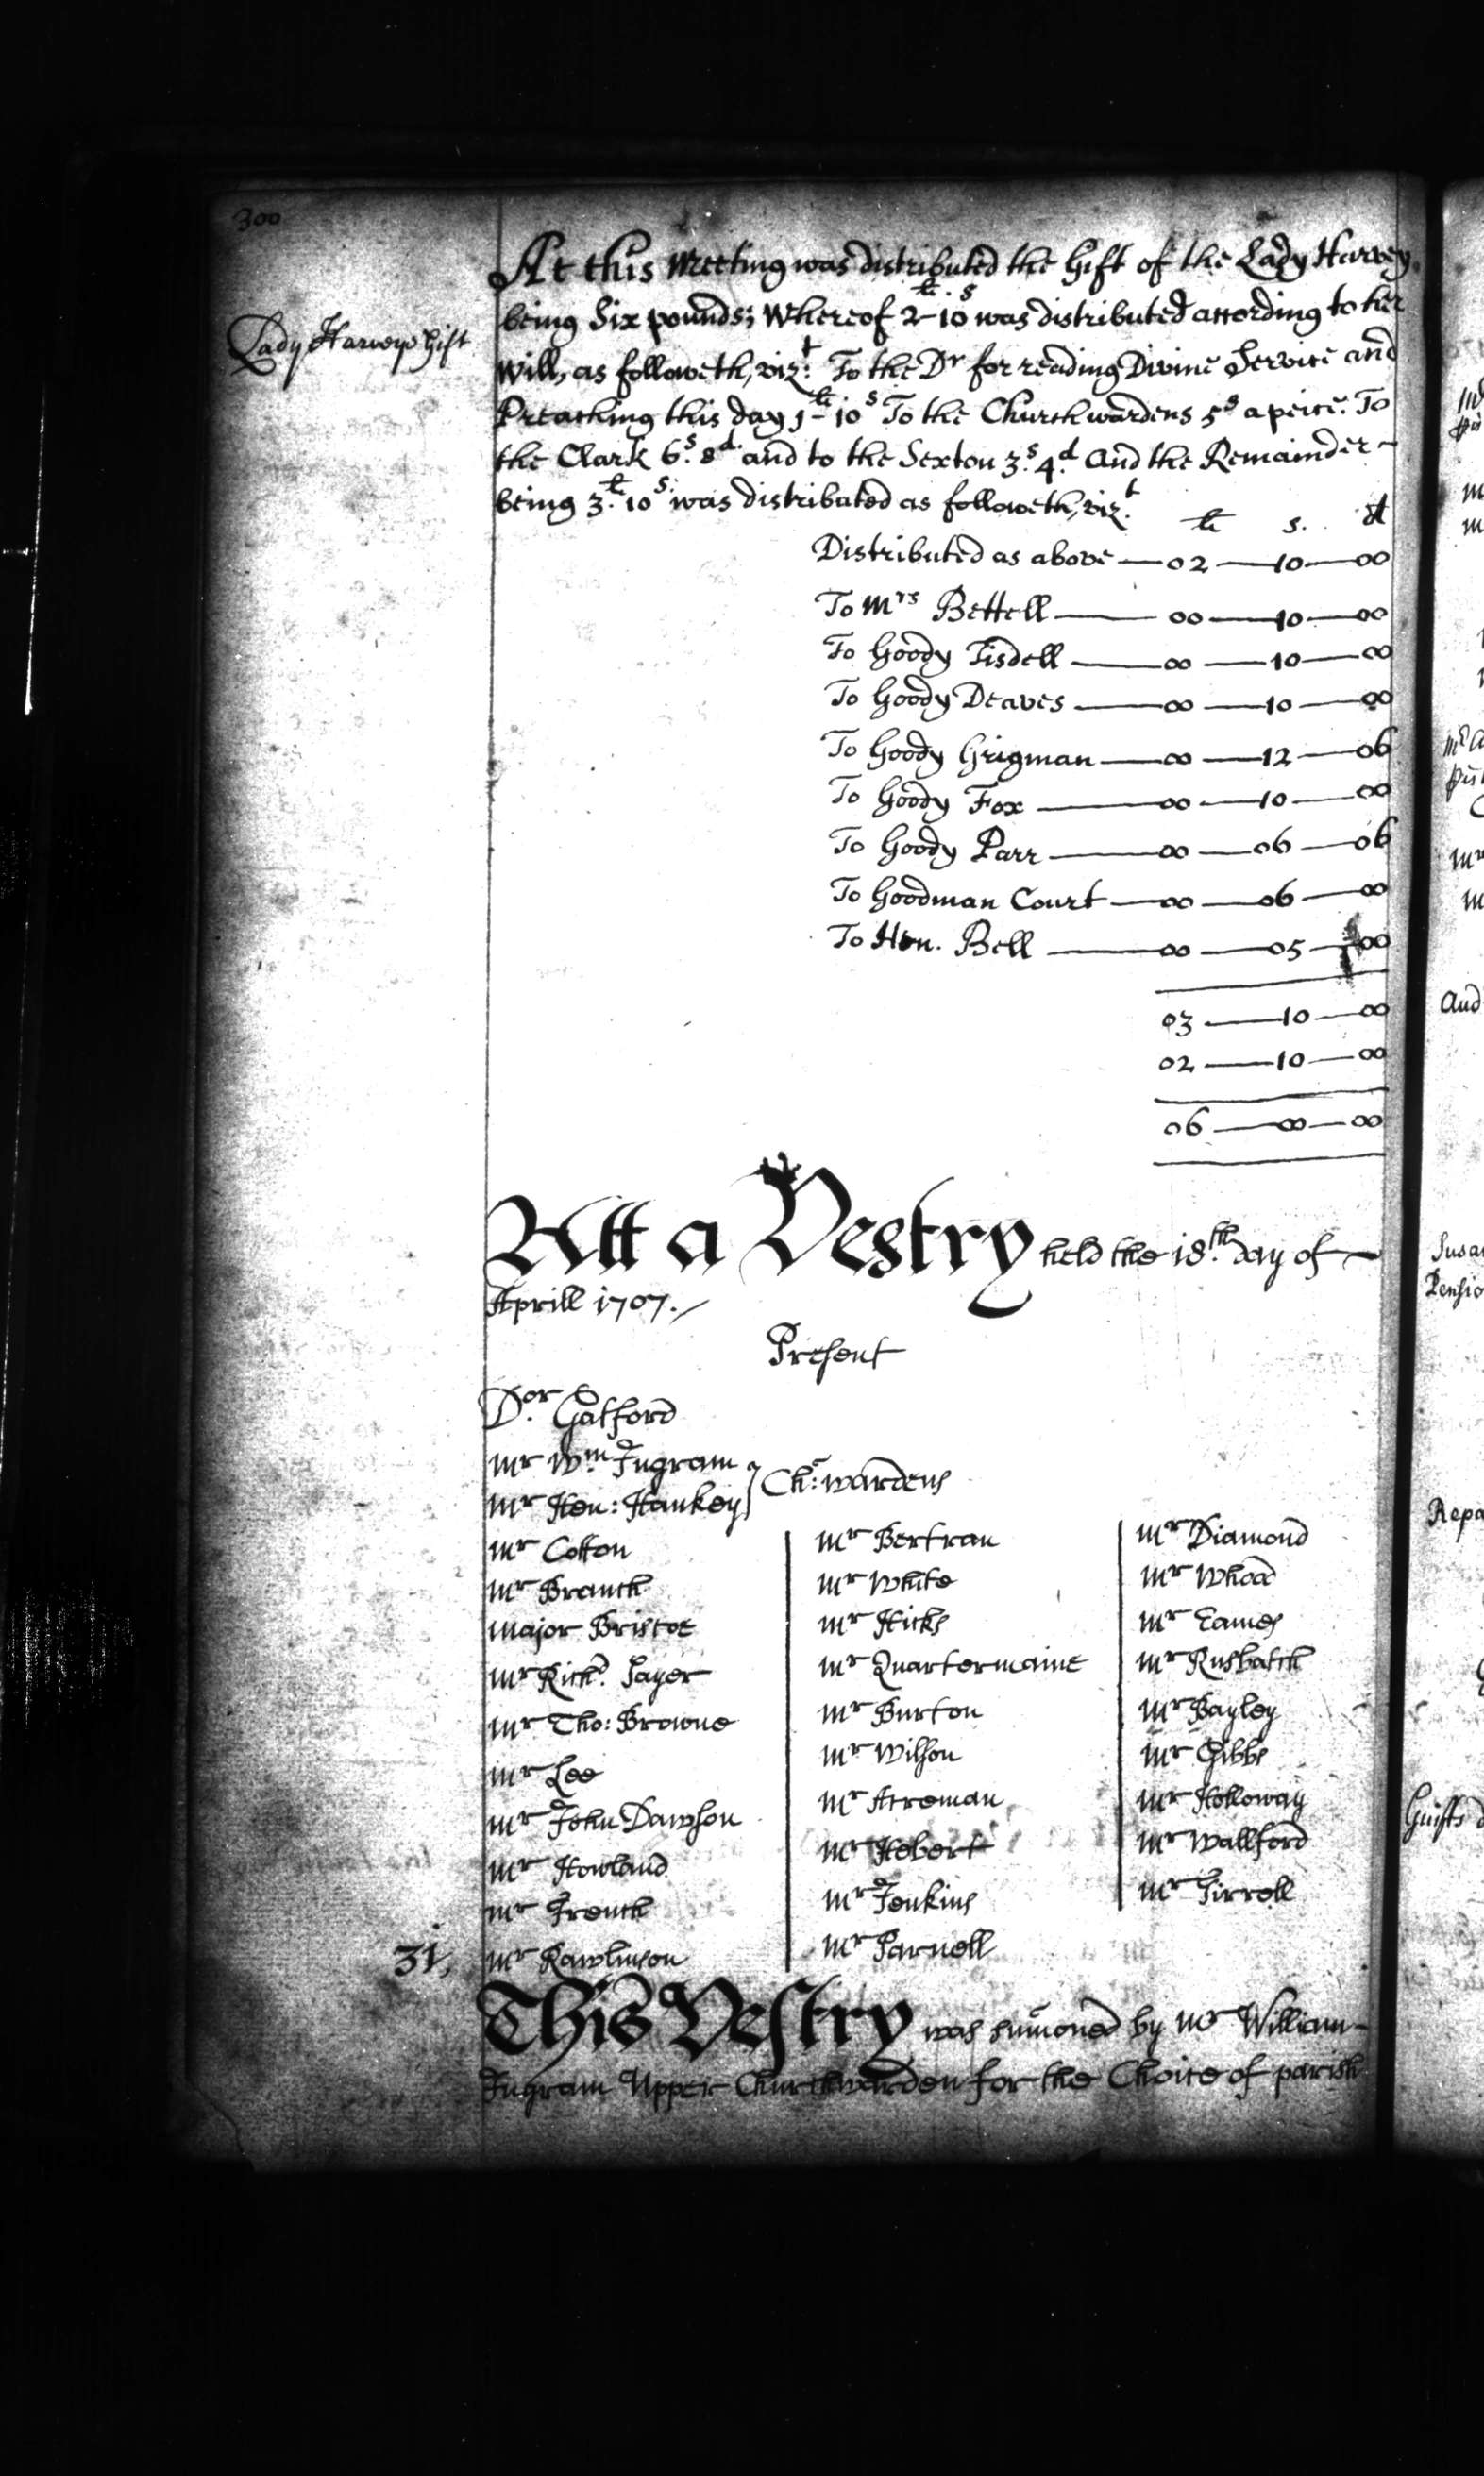 300
At this Meeting was distributed the Gift of the Lady Harvey
Lady Harveys Gift
being Six pounds; Whereof 2li. 10s was distributed according to her
Will, as followeth, vizt: To the Dr for reading Divine Service and
Preaching this day 1li 10s To the Churchwardens 5s apeice. To
the Clark 6s. 8d. and to the Sexton 3s. 4d. And the Remainder
being 3li. 10s. was distributed as followeth, vizt.
li s. d
Distributed as above — 02 — 10 — 00
To Mrs Bettell — 00 — 10 — 00
To Goody Tisdell — 00 — 10 — 00
To Goody Deaves — 00 — 10 — 00
To Goody Grigman — 00 — 12 — 06
To Goody Fox — 00 — 10 — 00
To Goody Parr — 00 — 06 — 06
To Goodman Court — 00 — 06 — 00
To Hen. Bell — 00 — 05 — 00
03 — 10 — 00
02 — 10 — 00
06 — 00 — 00
Att a Vestry held the 18th. day of
Aprill 1707.
Present
Dor. Gatford
Mr Wm. Ingram
Mr Hen: Hankey } Ch: wardens
Mr Cotton
Mr Branch
Major Briscoe
Mr Richd. Sayer
Mr Tho: Browne
Mr Lee
Mr John Dawson
Mr Howland
Mr French
31, Mr Rawlinson
Mr Bertran
Mr White
Mr Hicks
Mr Quartermaine
Mr Burton
Mr Wilson
Mr Acreman
Mr Hebert
Mr Jenkins
Mr Parnell
Mr Diamond
Mr Whoad
Mr Eames
Mr Rusbatch
Mr Bayley
Mr Gibbs
Mr Holloway
Mr Wallford
Mr Tirroll
This Vestry was sumoned by Mr William
Ingram Upper Churchwarden for the Choice of parish
And
Pensio
Repa
Guifts